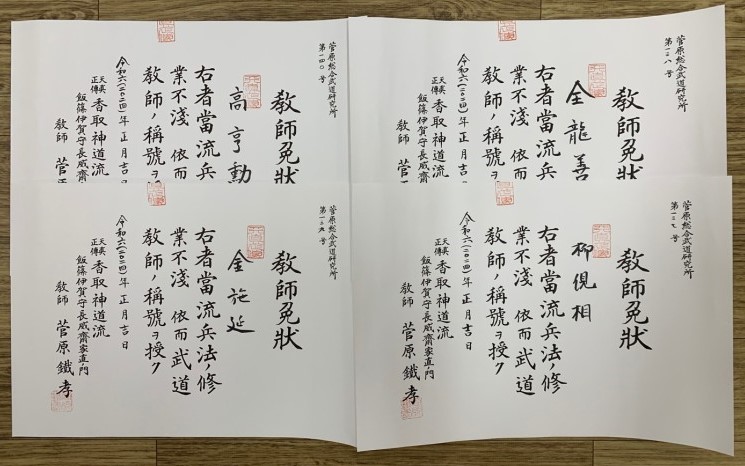 菅原総合武道研究所
第一三八号
敎師免狀
金龍善
右者當流兵
業不淺 依而
敎師ノ稱號ヲ
令和六(二〇二四)年正月吉日
天眞正傳 香取神道流
飯篠伊賀守長威齋
敎師 菅
菅原総合武道研究所
第一四〇号
敎師免狀
高亨勳
右者當流兵
業不淺 依而
敎師ノ稱號ヲ
令和六(二〇二四)年正月吉日
天眞正傳 香取神道流
飯篠伊賀守長威齋
敎師 菅
菅原総合武道研究所
第一三七号
敎師免狀
柳俔相
右者當流兵法ノ修
業不淺 依而武道
敎師ノ稱號ヲ授ク
令和六(二〇二四)年正月吉日
天眞正傳 香取神道流
飯篠伊賀守長威齋家直ノ門
敎師 菅原鐵孝
菅原総合武道研究所
第一三九号
敎師免狀
金施延
右者當流兵法ノ修
業不淺 依而武道
敎師ノ稱號ヲ授ク
令和六(二〇二四)年正月吉日
天眞正傳 香取神道流
飯篠伊賀守長威齋家直ノ門
敎師 菅原鐵孝